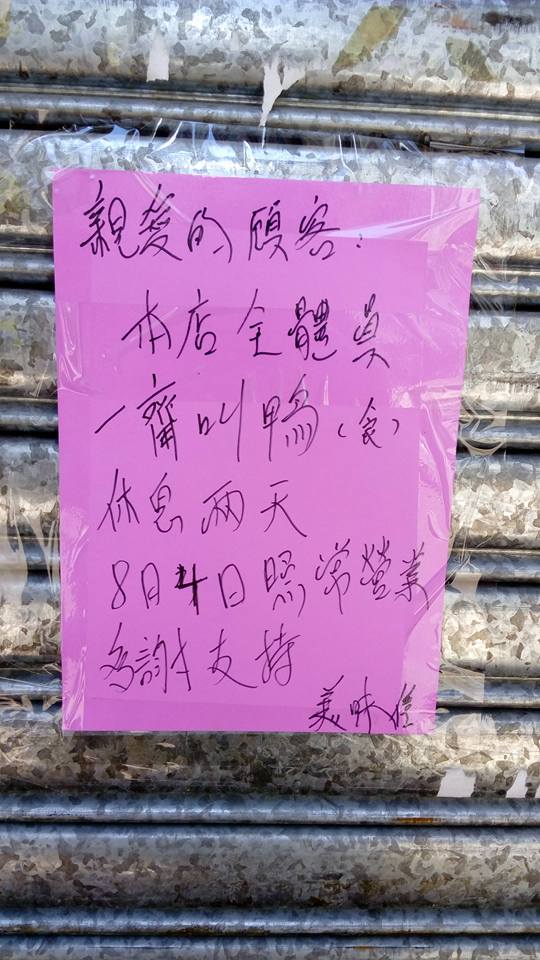 親愛的顧客：
本店全體員
一齊叫鴨（食）
休息兩天
8月4日照常營業
多謝支持
美味佳